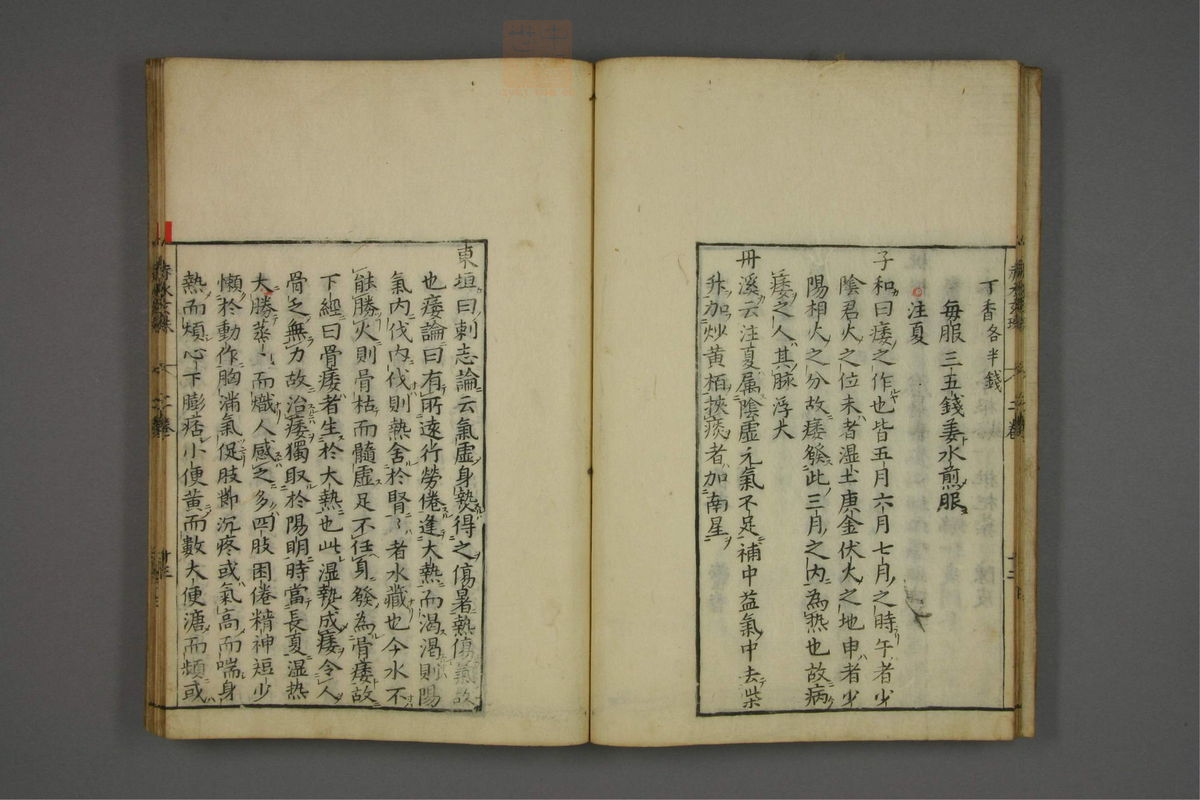 丁香各半錢
毎服三五錢姜水煎服
注夏
子和曰痿之作也皆五月六月七月之時午者少
陰君火之位未者湿土庚金伏火之地申者少
陽相火之分故痿發此三月之内為热也故病
痿之人其脉浮大
丹溪云注夏属陰虚元氣不足補中益氣中去柴
升加炒黄栢挾痰者加南星
東垣曰刺志論云氣虚身熱得之傷暑熱傷氣故
也痿論曰有所遠行勞倦逢大熱而渴渴則陽
氣内伐内伐則熱舍於腎〻者水藏也今水不
能勝火則骨枯而髓虚足不任身發為骨痿故
下經曰骨痿者生於大熱也此湿熱成痿令人
骨乏無力故治痿獨取於陽明時當長夏湿热
大勝蒸〻而熾人感之多四肢困倦精神短少
懶於動作胸滿氣促肢節沉疼或氣高而喘身
熱而煩心下膨痞小便黄而數大便溏而頻或